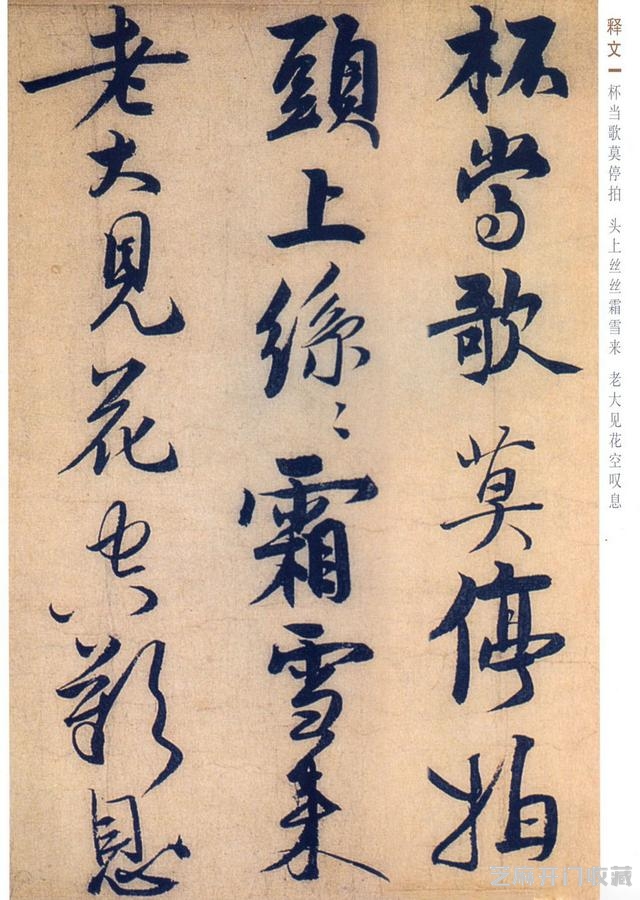 释文
杯当歌莫停拍 头上丝丝霜雪来 老大见花空叹息
杯當歌莫停拍
頭上絲〻霜雪來
老大見花空歎息
芝麻开门收藏